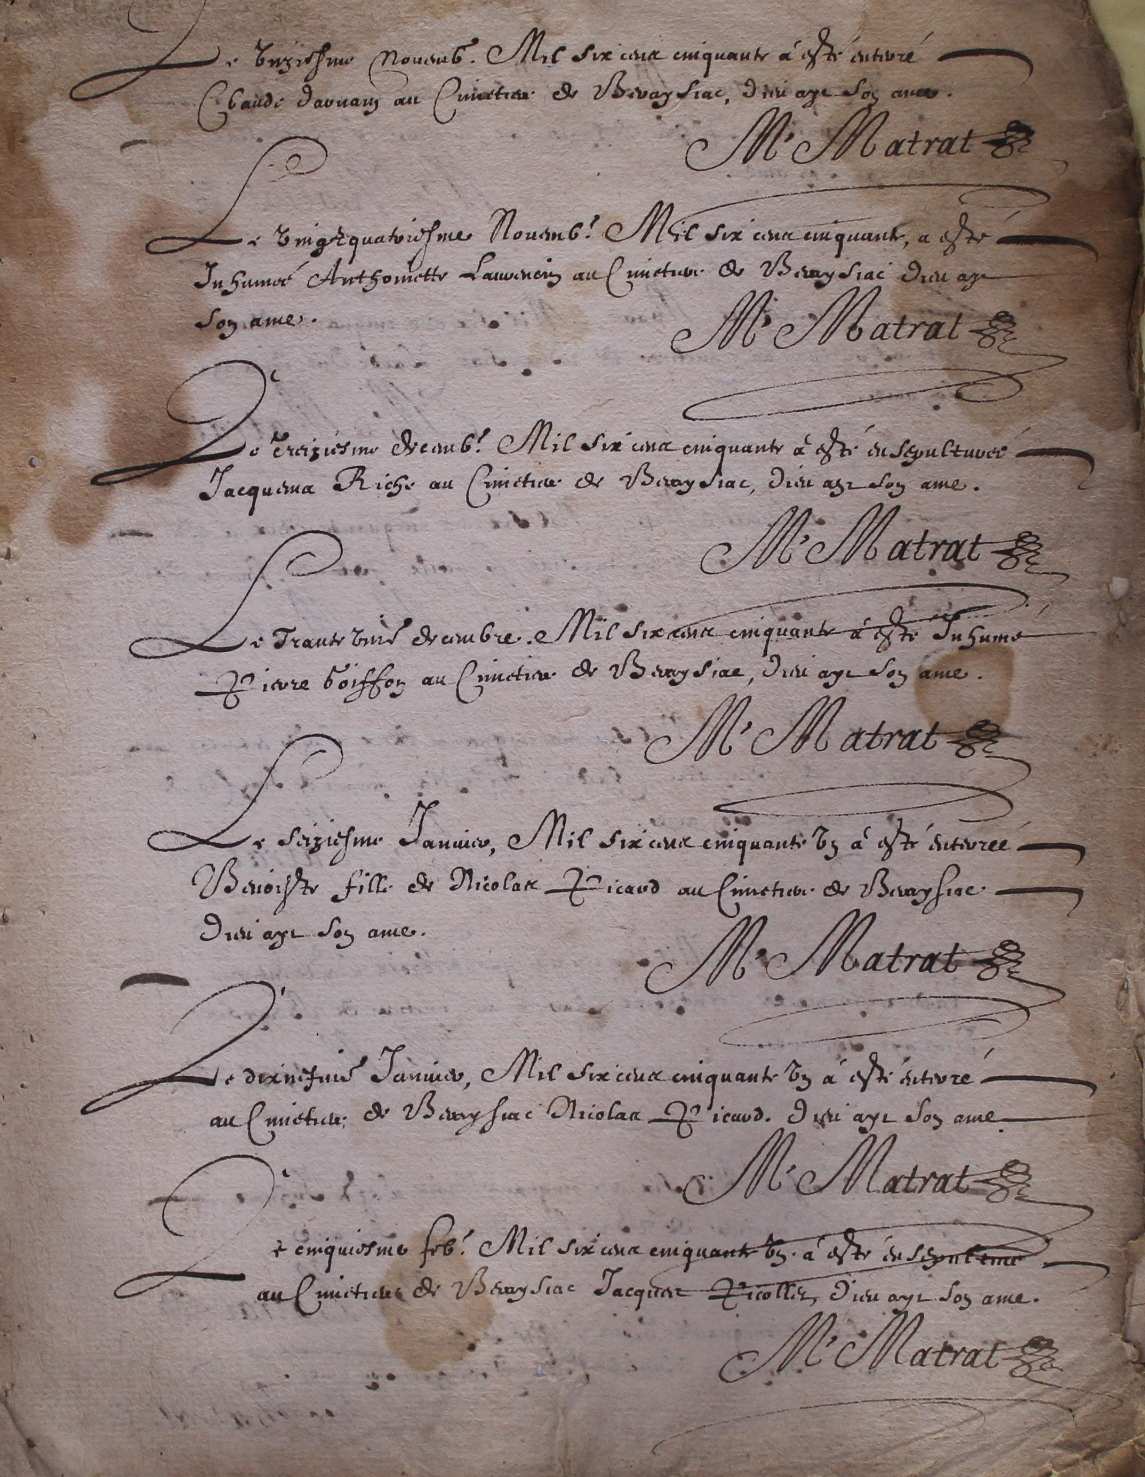 Le unziesme Novemb. Mil six cens cinquante à esté enterré
Claude Davnaz au Cimetiere de Beraysiac, Dieu aye son ame.
M. Matrat
Le vingt quatriesme Novemb. Mil six cens cinquante, a esté
Inhumée Anthoinette Laurencin au Cimetiere de Beraysiac Dieu aye
son ame.
M. Matrat
Le treiziesme decemb. Mil six cens cinquante à esté ensepulturée
Jacquema Riche au Cimetiere de Beraysiac, Dieu aye son ame.
M. Matrat
Le Trante uniesme decembre. Mil six cens cinquante à esté Inhumé
Pierre Goiffon au Cimetiere de Beraysiac, Dieu aye son ame.
M. Matrat
Le seiziesme Janvier, Mil six cens cinquante un à esté enterrée
Benoiste fille de Nicolas Picard au Cimetiere de Beraysiac
Dieu aye son ame.
M. Matrat
Le dixneufvie Janvier, Mil six cens cinquante un à esté enterré
au Cimetiere de Beraysiac Nicolas Picard. Dieu aye son ame
M. Matrat
Le cinquiesme feb. Mil six cens cinquante un. à esté ensepulturé
au Cimetiere de Beraysiac Jacques Picollet, Dieu aye son ame.
M. Matrat